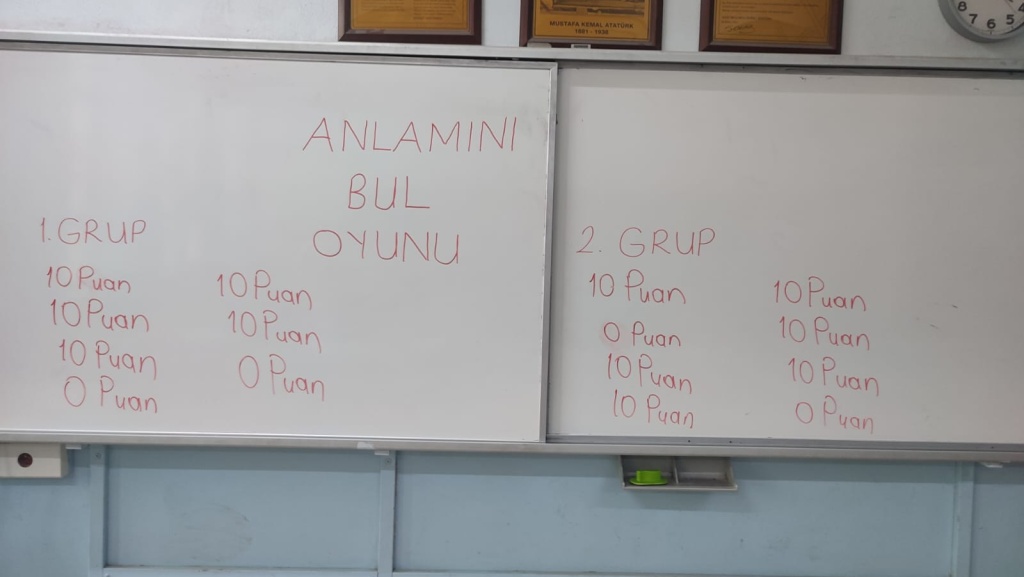 MUSTAFA KEMAL ATATÜRK
1881 - 1938
8 7 6 5 4
ANLAMINI
BUL
OYUNU
1. GRUP
10 Puan
10 Puan
10 Puan
0 Puan
10 Puan
10 Puan
0 Puan
2. GRUP
10 Puan
0 Puan
10 Puan
10 Puan
10 Puan
10 Puan
10 Puan
0 Puan